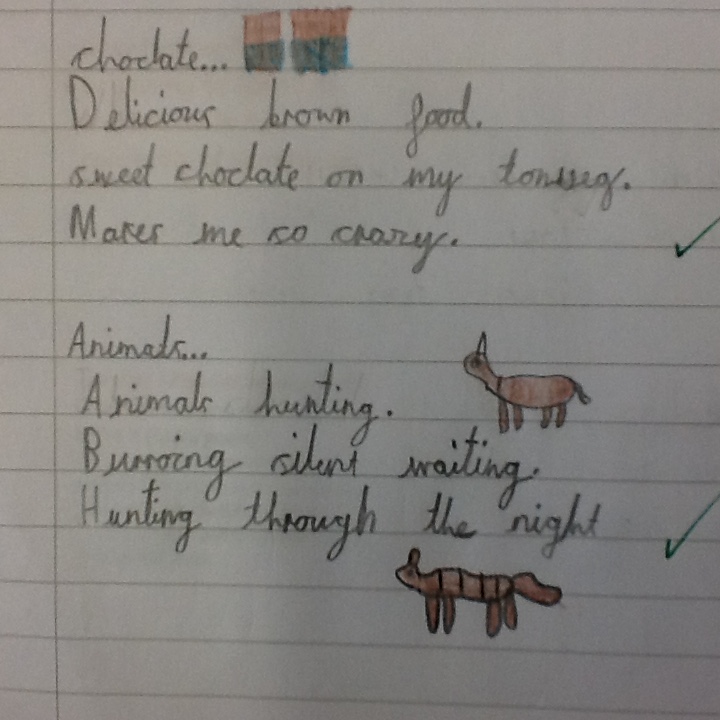 choclate...
Delicious brown food.
sweet choclate on my tonuseg.
Makes me so crazy.
Animals...
Animals hunting.
Burroing silent waiting.
Hunting through the night